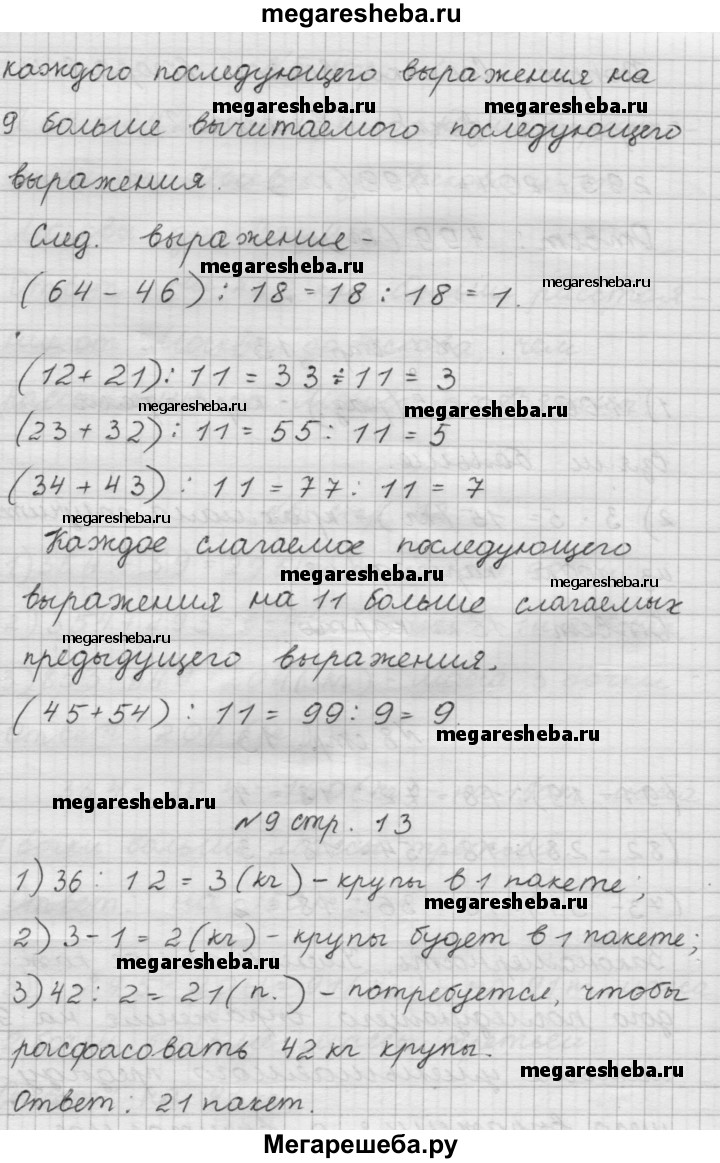 megaresheba.ru
каждого последующего выражения на
megaresheba.ru megaresheba.ru
9 больше вычитаемого последующего
выражения.
След. выражение -
megaresheba.ru
(64 - 46) : 18 = 18 : 18 = 1.
megaresheba.ru
(12 + 21) : 11 = 33 : 11 = 3
megaresheba.ru megaresheba.ru
(23 + 32) : 11 = 55 : 11 = 5
(34 + 43) : 11 = 77 : 11 = 7
megaresheba.ru
Каждое слагаемое последующего
megaresheba.ru megaresheba.ru
выражения на 11 больше слагаемых
megaresheba.ru
предыдущего выражения.
(45 + 54) : 11 = 99 : 9 = 9
megaresheba.ru
megaresheba.ru
№9 стр. 13
1) 36 : 12 = 3 (кг) - крупы в 1 пакете;
megaresheba.ru
2) 3 - 1 = 2 (кг) - крупы будет в 1 пакете;
megaresheba.ru
3) 42 : 2 = 21 (п.) - потребуется, чтобы
расфасовать 42 кг крупы.
megaresheba.ru
Ответ: 21 пакет.
Мегарешеба.ру